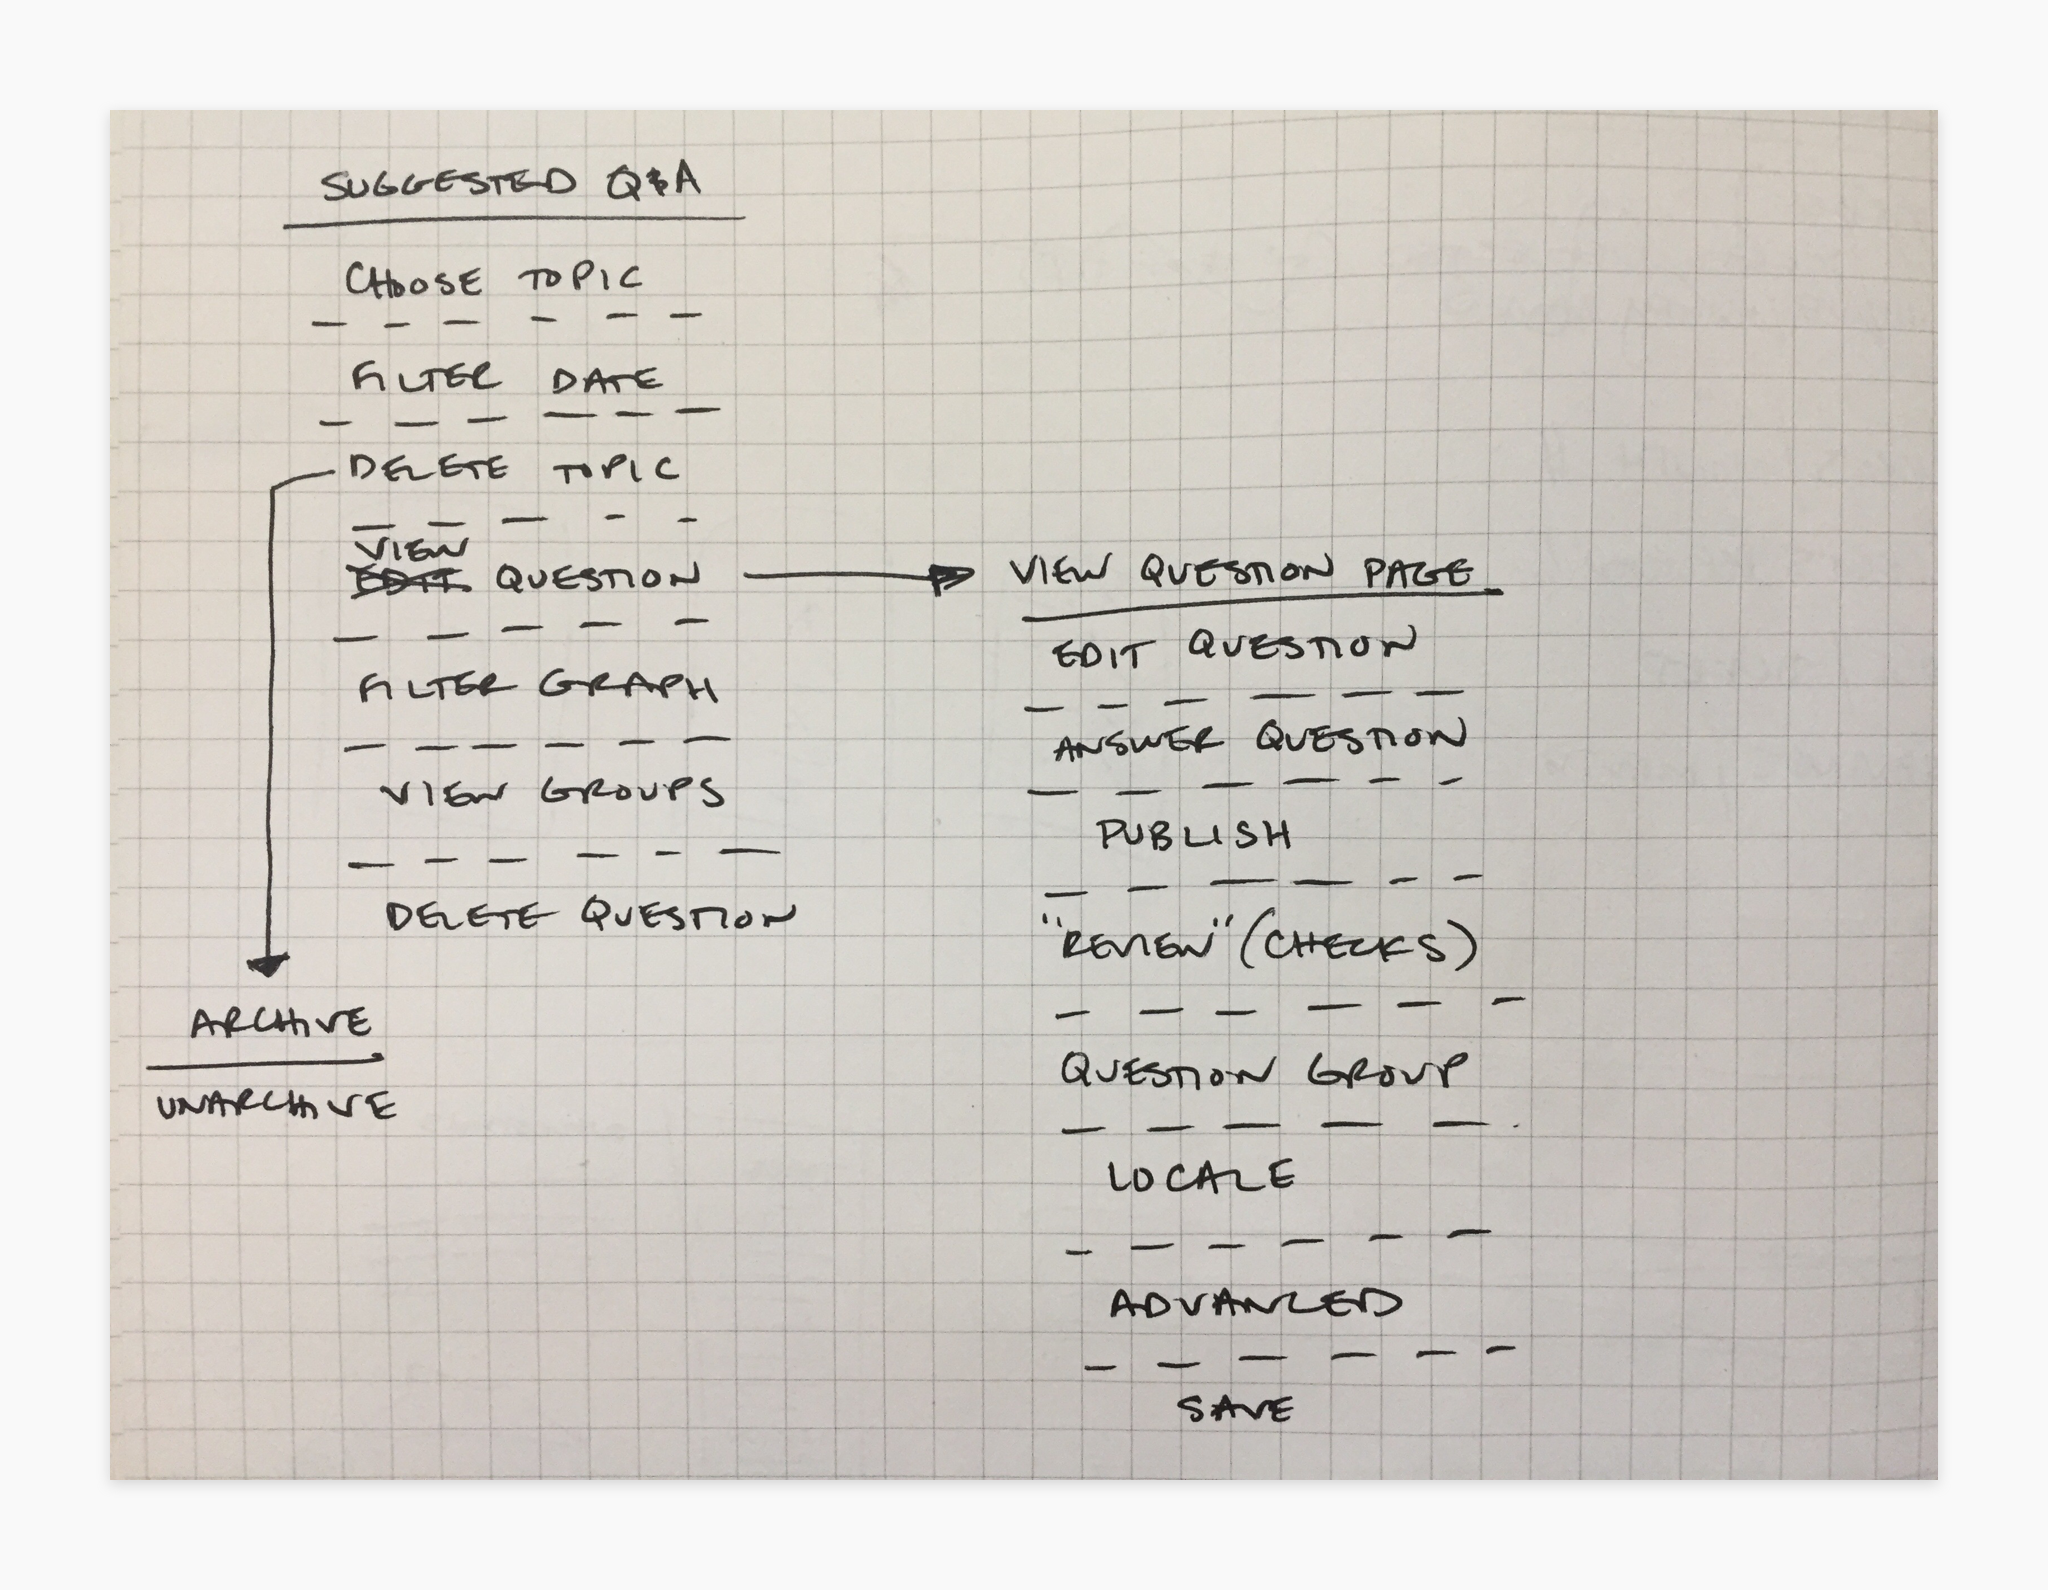 SUGGESTED Q&A
CHOOSE TOPIC
FILTER DATE
DELETE TOPIC
VIEW
EDIT QUESTION
FILTER GRAPH
VIEW GROUPS
DELETE QUESTION
ARCHIVE
UNARCHIVE
VIEW QUESTION PAGE
EDIT QUESTION
ANSWER QUESTION
PUBLISH
"REVIEW" (CHECKS)
QUESTION GROUP
LOCALE
ADVANCED
SAVE